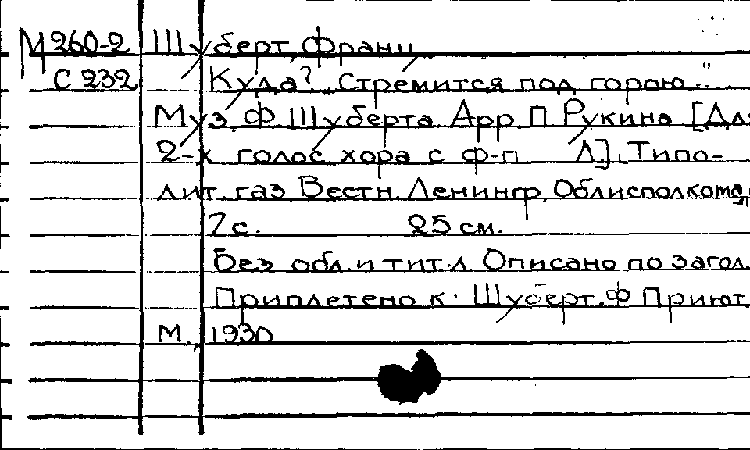 М 260-2 Шуберт, Франц
С 232 Куда? „Стремится под горою..."
Муз. Ф. Шуберта. Арр. П. Рукина [Для
2-х голос. хора с ф-п. Л], Типо-
лит. газ. Вестн. Ленингр. Облисполкома,
7 с. 25 см.
Без обл. и тит. л. Описано по загол.
Приплетено к: Шуберт. Ф. Приют
М., 1930